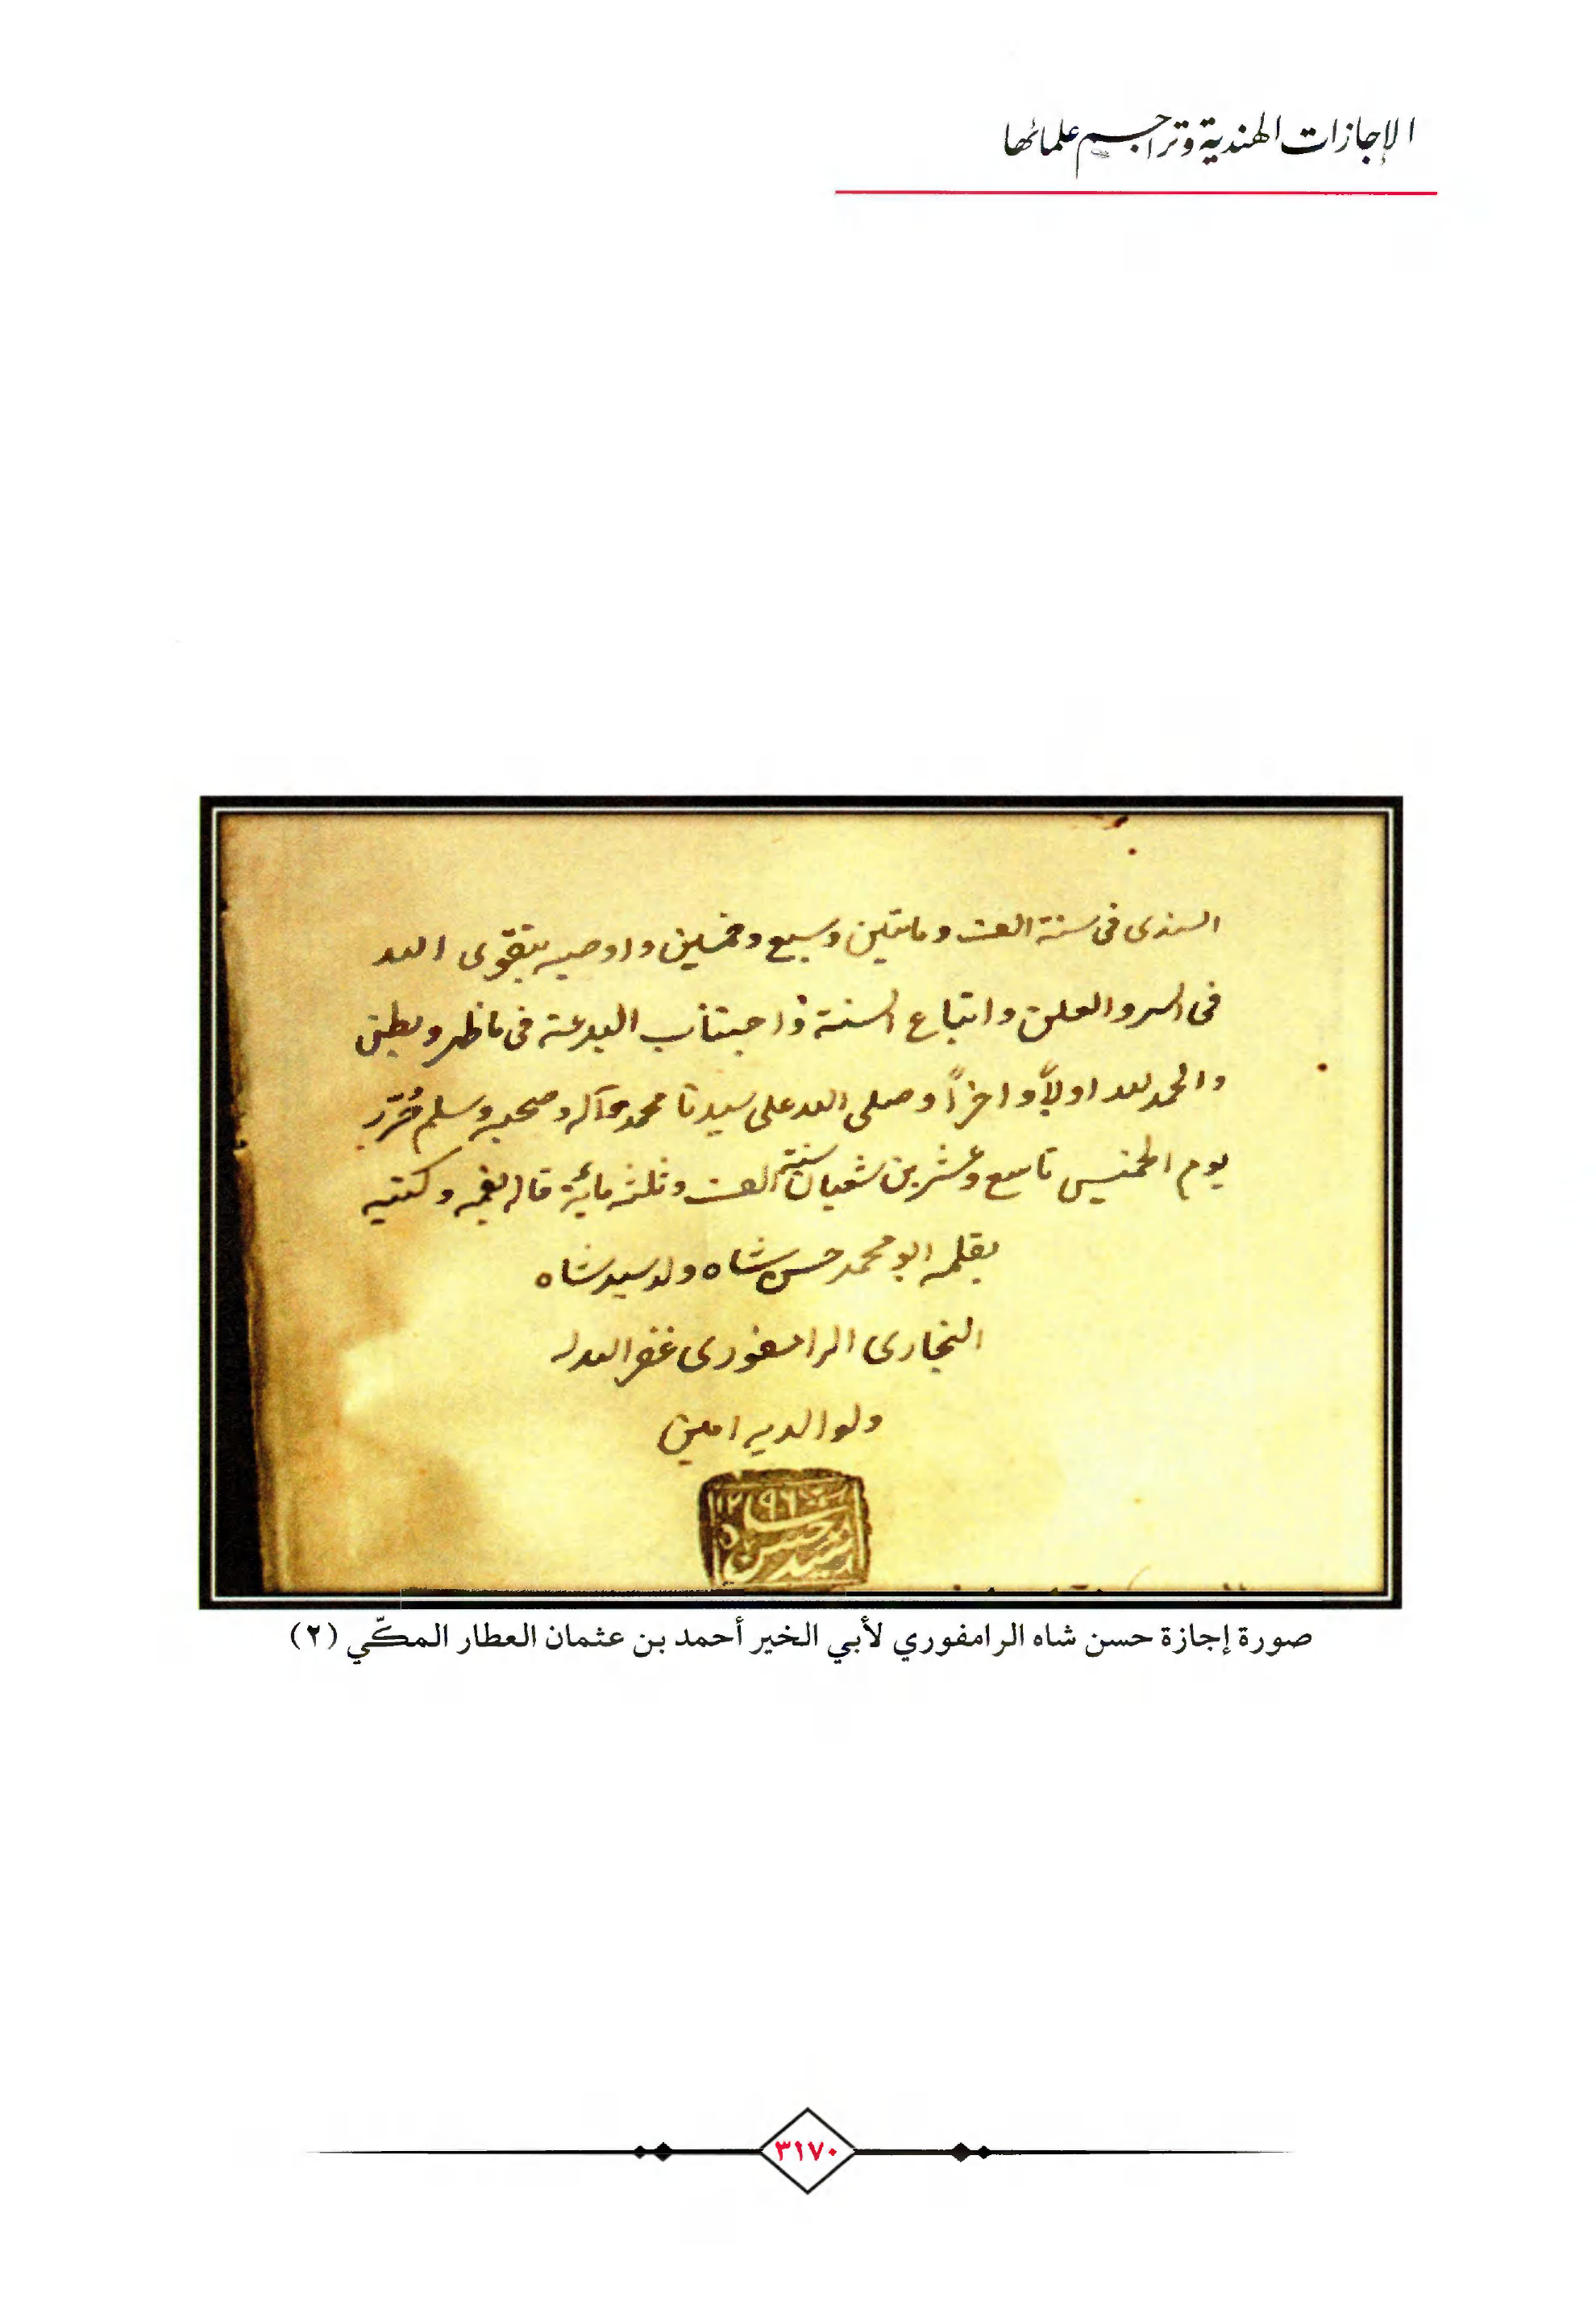 الإجازات الهندية وتراجم علمائها
السندى فى سنة الف وماتين وسبع وخمسين واوصيه بتقوى الله
فى السر والعلن واتباع السنة واجتناب البدعة فى ما ظهر وبطن
والحمد لله اولاً واخراً وصلى الله على سيدنا محمد وآله وصحبه وسلم حُرّر
يوم الخميس تاسع وعشرين شعبان سنة الف وثلثمائة قاله بفمه وكتبه
بقلمه ابو محمد حسن شاه ولد سيد شاه
البخارى الرامفورى غفر الله له
ولوالديه امين
سنة ١٢٩٦
سيد حسن شاه
صورة إجازة حسن شاه الرامفوري لأبي الخير أحمد بن عثمان العطار المكّي (٢)
٣١٧٠